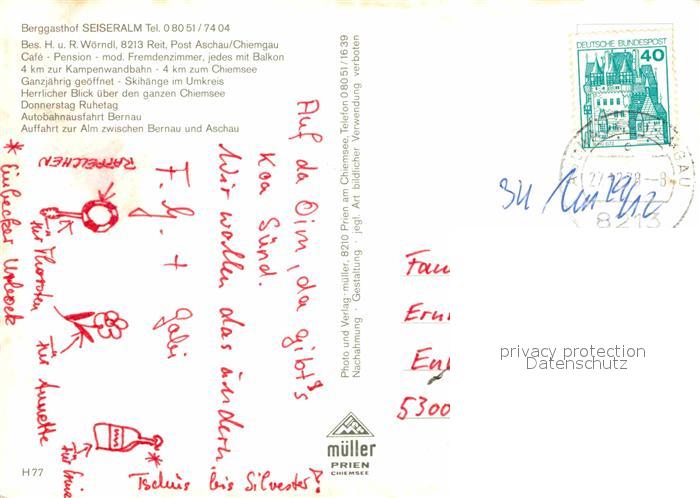 Berggasthof SEISERALM Tel. 0 80 51 / 74 04
Bes. H. u. R. Wörndl, 8213 Reit, Post Aschau/Chiemgau
Café - Pension - mod. Fremdenzimmer, jedes mit Balkon
4 km zur Kampenwandbahn - 4 km zum Chiemsee
Ganzjährig geöffnet - Skihänge im Umkreis
Herrlicher Blick über den ganzen Chiemsee
Donnerstag Ruhetag
Autobahnausfahrt Bernau
Auffahrt zur Alm zwischen Bernau und Aschau
Auf da Oim, da gibt's
koa Sünd.
Wir wollen das ändern
F.J. + Gabi
RAPPELCHEN
für Thorsten
für Annette
für
* Einbecker Urbock
Tschüs bis Silvester!
*
H 77
Photo und Verlag · müller, 8210 Prien am Chiemsee, Telefon 0 80 51 / 16 39
Nachahmung · Gestaltung · jegl. Art bildlicher Verwendung verboten
müller
PRIEN
CHIEMSEE
DEUTSCHE BUNDESPOST
40
GAU
8213
Fam
5300
privacy protection
Datenschutz